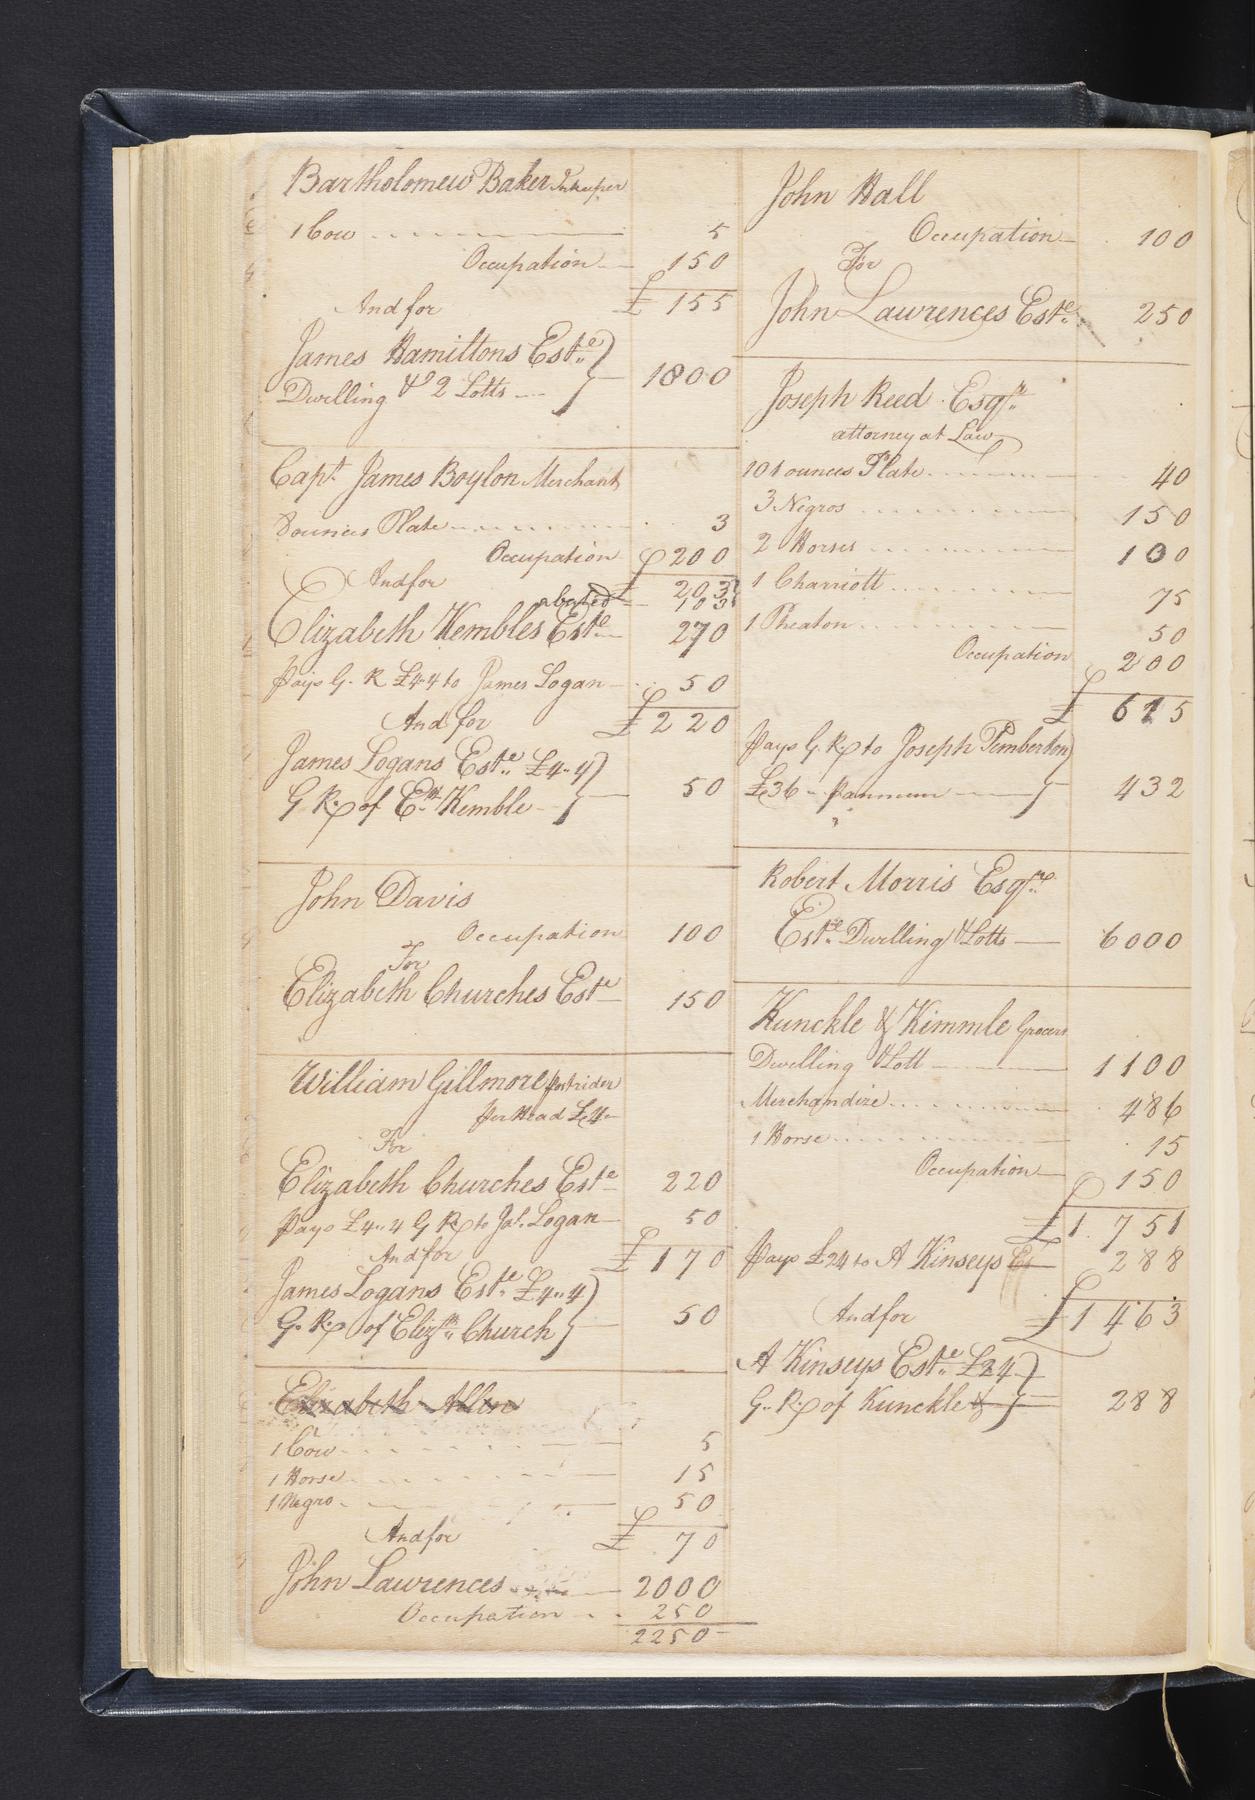 Bartholomew Baker Inkeeper
1 Cow 5
Occupation 150
£ 155
And for
James Hamiltons Este
Dwelling & 2 Lotts 1800
Capt. James Boylon Merchant
8 ounces Plate 3
Occupation £200
And for 203
abated 103
Elizabeth Kembles Este 270
Pays G. R £4-4 to James Logan 50
And for £220
James Logans Este £4..4
G Rt of Eth Kemble 50
John Davis
Occupation 100
For
Elizabeth Churches Este 150
William Gillmore Postrider
Per Head £4
For
Elizabeth Churches Este 220
Pays £4..4 G Rt to Jas. Logan 50
And for £170
James Logans Este £4..4
G. Rt of Elizth Church 50
Elizabeth Allen
1 Cow 5
1 Horse 15
1 Negro 50
And for £ 70
John Lawrences 2000
Occupation 250
2250
John Hall
Occupation 100
For
John Lawrences Este 250
Joseph Reed Esqr
attorney at Law
101 ounces Plate 40
3 Negros 150
2 Horses 100
1 Charriott 75
1 Pheaton 50
Occupation 200
£ 615
Pays G. Rt to Joseph Pemberton
£36 Pannum 432
Robert Morris Esqr
Este Dwelling & Lotts 6000
Kunckle & Kimmle Grocers
Dwelling & Lott 1100
Merchandize 486
1 Horse 15
Occupation 150
£1.751
Pays £24 to A Kinseys Es 288
And for £1463
A Kinseys Este £24
G. Rt of Kunckle & 288